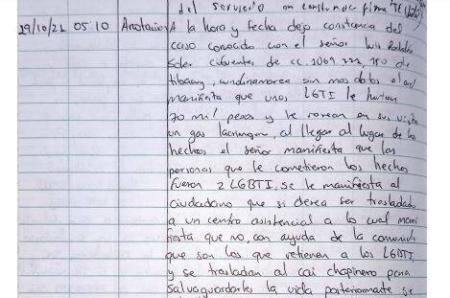 del servicio en constancia firma TE
29/10/21 05:10 Anotacion A la hora y fecha dejo constancia del
caso conocido con el señor Luis
Soler cifuentes de cc 1069 722 de
tibacuy, cundinamarca sin mas datos el
manifiesta que unos LGTI le hurtan
70 mil pesos y le rosean en su vista
un gas lacrimogeno, al llegar al lugar de los
hechos el señor manifiesta que las
personas que le cometieron los hechos
fueron 2 LGBTI, se le manifiesta al
ciudadano que si desea ser trasladado
a un centro asistencial a lo cual mani
fiesta que no, con ayuda de la comunidad
que son los que retienen a los LGBTI
y se trasladan al cai chapinero para
salvaguardarles la vida posteriormente se